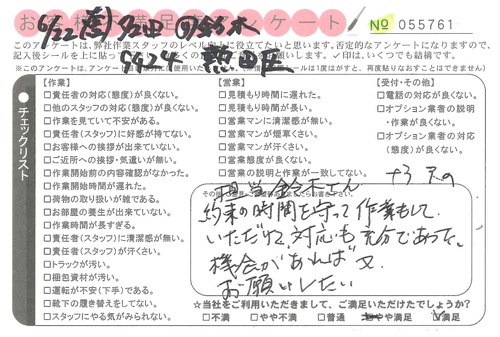 お客様満足アンケート
№ 055761
6/22
鈴木
6424 熱田区
このアンケートは、弊社作業スタッフのレベル向上に役立てたいと思います。否定的なアンケートになりますので、
記入後シールを上に貼っ
お願いします。✓印は、いくつでも結構です。
(※シールは1度はがすと、再度貼りなおすことはできません)
チェックリスト
【作業】
□責任者の対応(態度)が良くない。
□他のスタッフの対応(態度)が良くない。
□作業を見ていて不安がある。
□責任者(スタッフ)に好感が持てない。
□お客様への挨拶が出来ていない。
□ご近所への挨拶・気遣いが無い。
□作業開始前の内容確認がなかった。
□作業開始時間が遅れた。
□荷物の取り扱いが雑である。
□お部屋の養生が出来ていない。
□作業時間が長すぎる。
□責任者(スタッフ)に清潔感が無い。
□責任者(スタッフ)が汗くさい。
□トラックが汚い。
□梱包資材が汚い。
□運転が不安(下手)である。
□靴下の履き替えをしてない。
□スタッフにやる気がみられない。
【営業】
□見積もり時間に遅れた。
□見積もり時間が長い。
□営業マンに清潔感が無い。
□営業マンが煙草くさい。
□営業マンが汗くさい。
□営業態度が良くない。
□営業の説明と作業が一致してない。
【受付・その他】
□電話の対応が良くない。
□オプション業者の説明
・作業が良くない。
□オプション業者の対応
(態度)が良くない。
担当鈴木さん
約束の時間を守って作業もして
いただけて、対応も充分であった。
機会があれば又
お願いしたい
☆当社をご利用いただきまして、ご満足いただけたでしょうか?
□不満 □やや不満 □普通 □やや満足 □満足